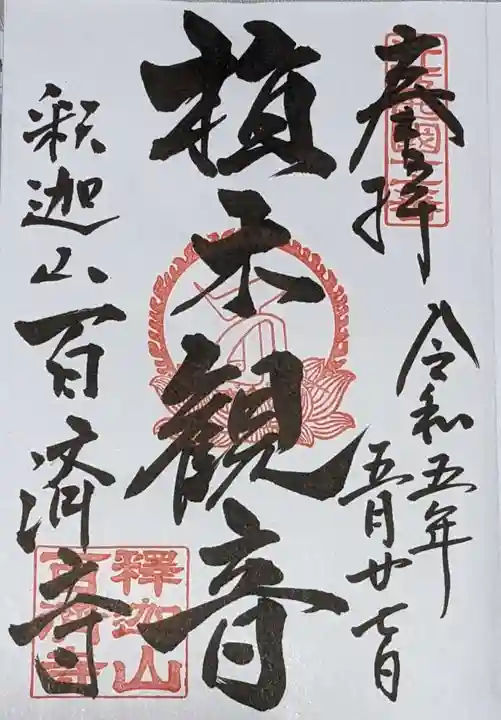 奉拝
令和五年
五月廿七日
植木観音
釈迦山百済寺
釋迦山
百濟寺